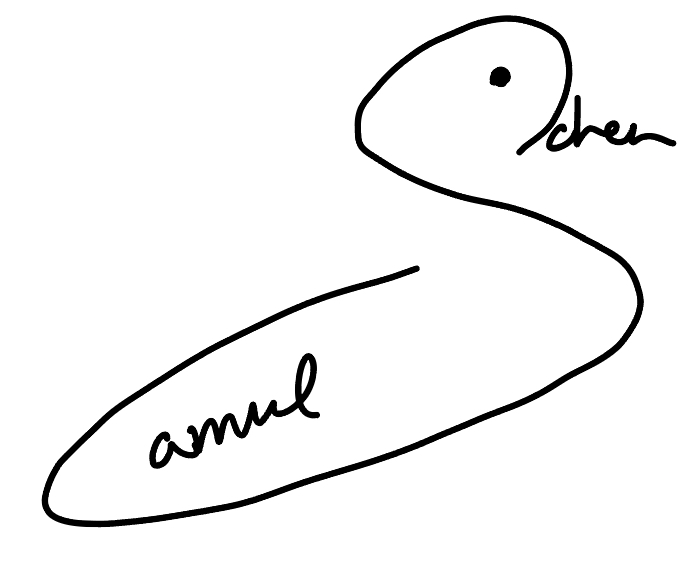 chen
amul